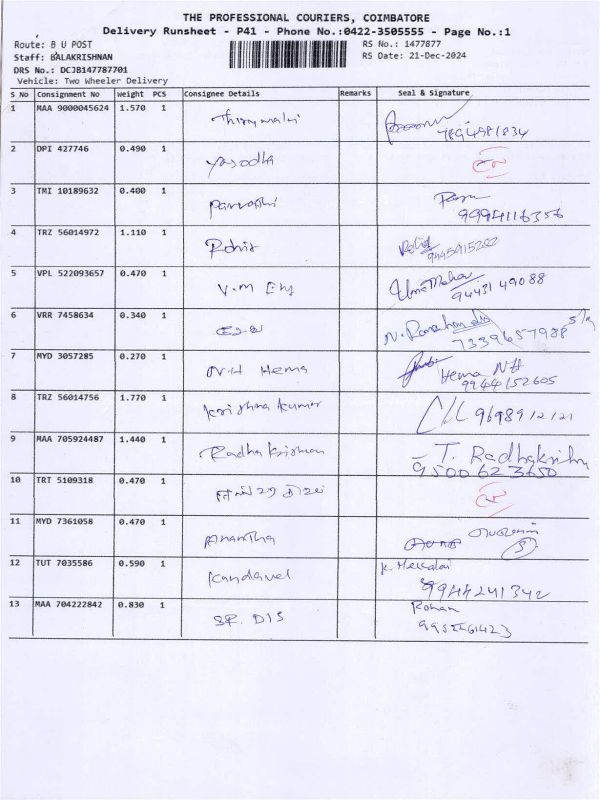 THE PROFESSIONAL COURIERS, COIMBATORE
Delivery Runsheet - P41 - Phone No.:0422-3505555 - Page No.:1
Route: B U POST
RS No.: 1477877
Staff: BALAKRISHNAN
RS Date: 21-Dec-2024
DRS No.: DCJB147787701
Vehicle: Two Wheeler Delivery
S No Consignment No Weight PCS Consignee Details Remarks Seal & Signature
1 MAA 9000045624 1.570 1
2 DPI 427746 0.490 1 Yasodha
3 TMI 10189632 0.400 1 Parvathi 9994116356
4 TRZ 56014972 1.110 1 Rohit
5 VPL 522093657 0.470 1 V.M Eng Uma Mahes 9443149088
6 VRR 7458634 0.340 1 N. Ramachandra 7339657988
7 MYD 3057285 0.270 1 N.H Hema Hema NH 9944152605
8 TRZ 56014756 1.770 1 Krishna Kumar
9 MAA 705924487 1.440 1 Radha Krishnan T. Radhakrishn 9500623650
10 TRT 5109318 0.470 1
11 MYD 7361058 0.470 1 Anantha
12 TUT 7035586 0.590 1 Kandavel 9944241342
13 MAA 704222842 0.830 1 SR. DIS Rohan